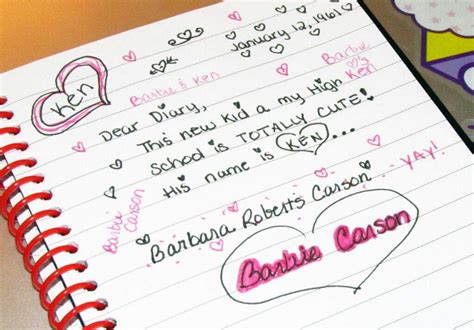 January 12, 1961
Ken
Barbie & Ken
Barbie
♥'s
Ken
Dear Diary,
This new kid a my High
school is TOTALLY CUTE!
His name is KEN...
Barbie
Carson
YAY!
Barbara Roberts Carson
Barbie Carson